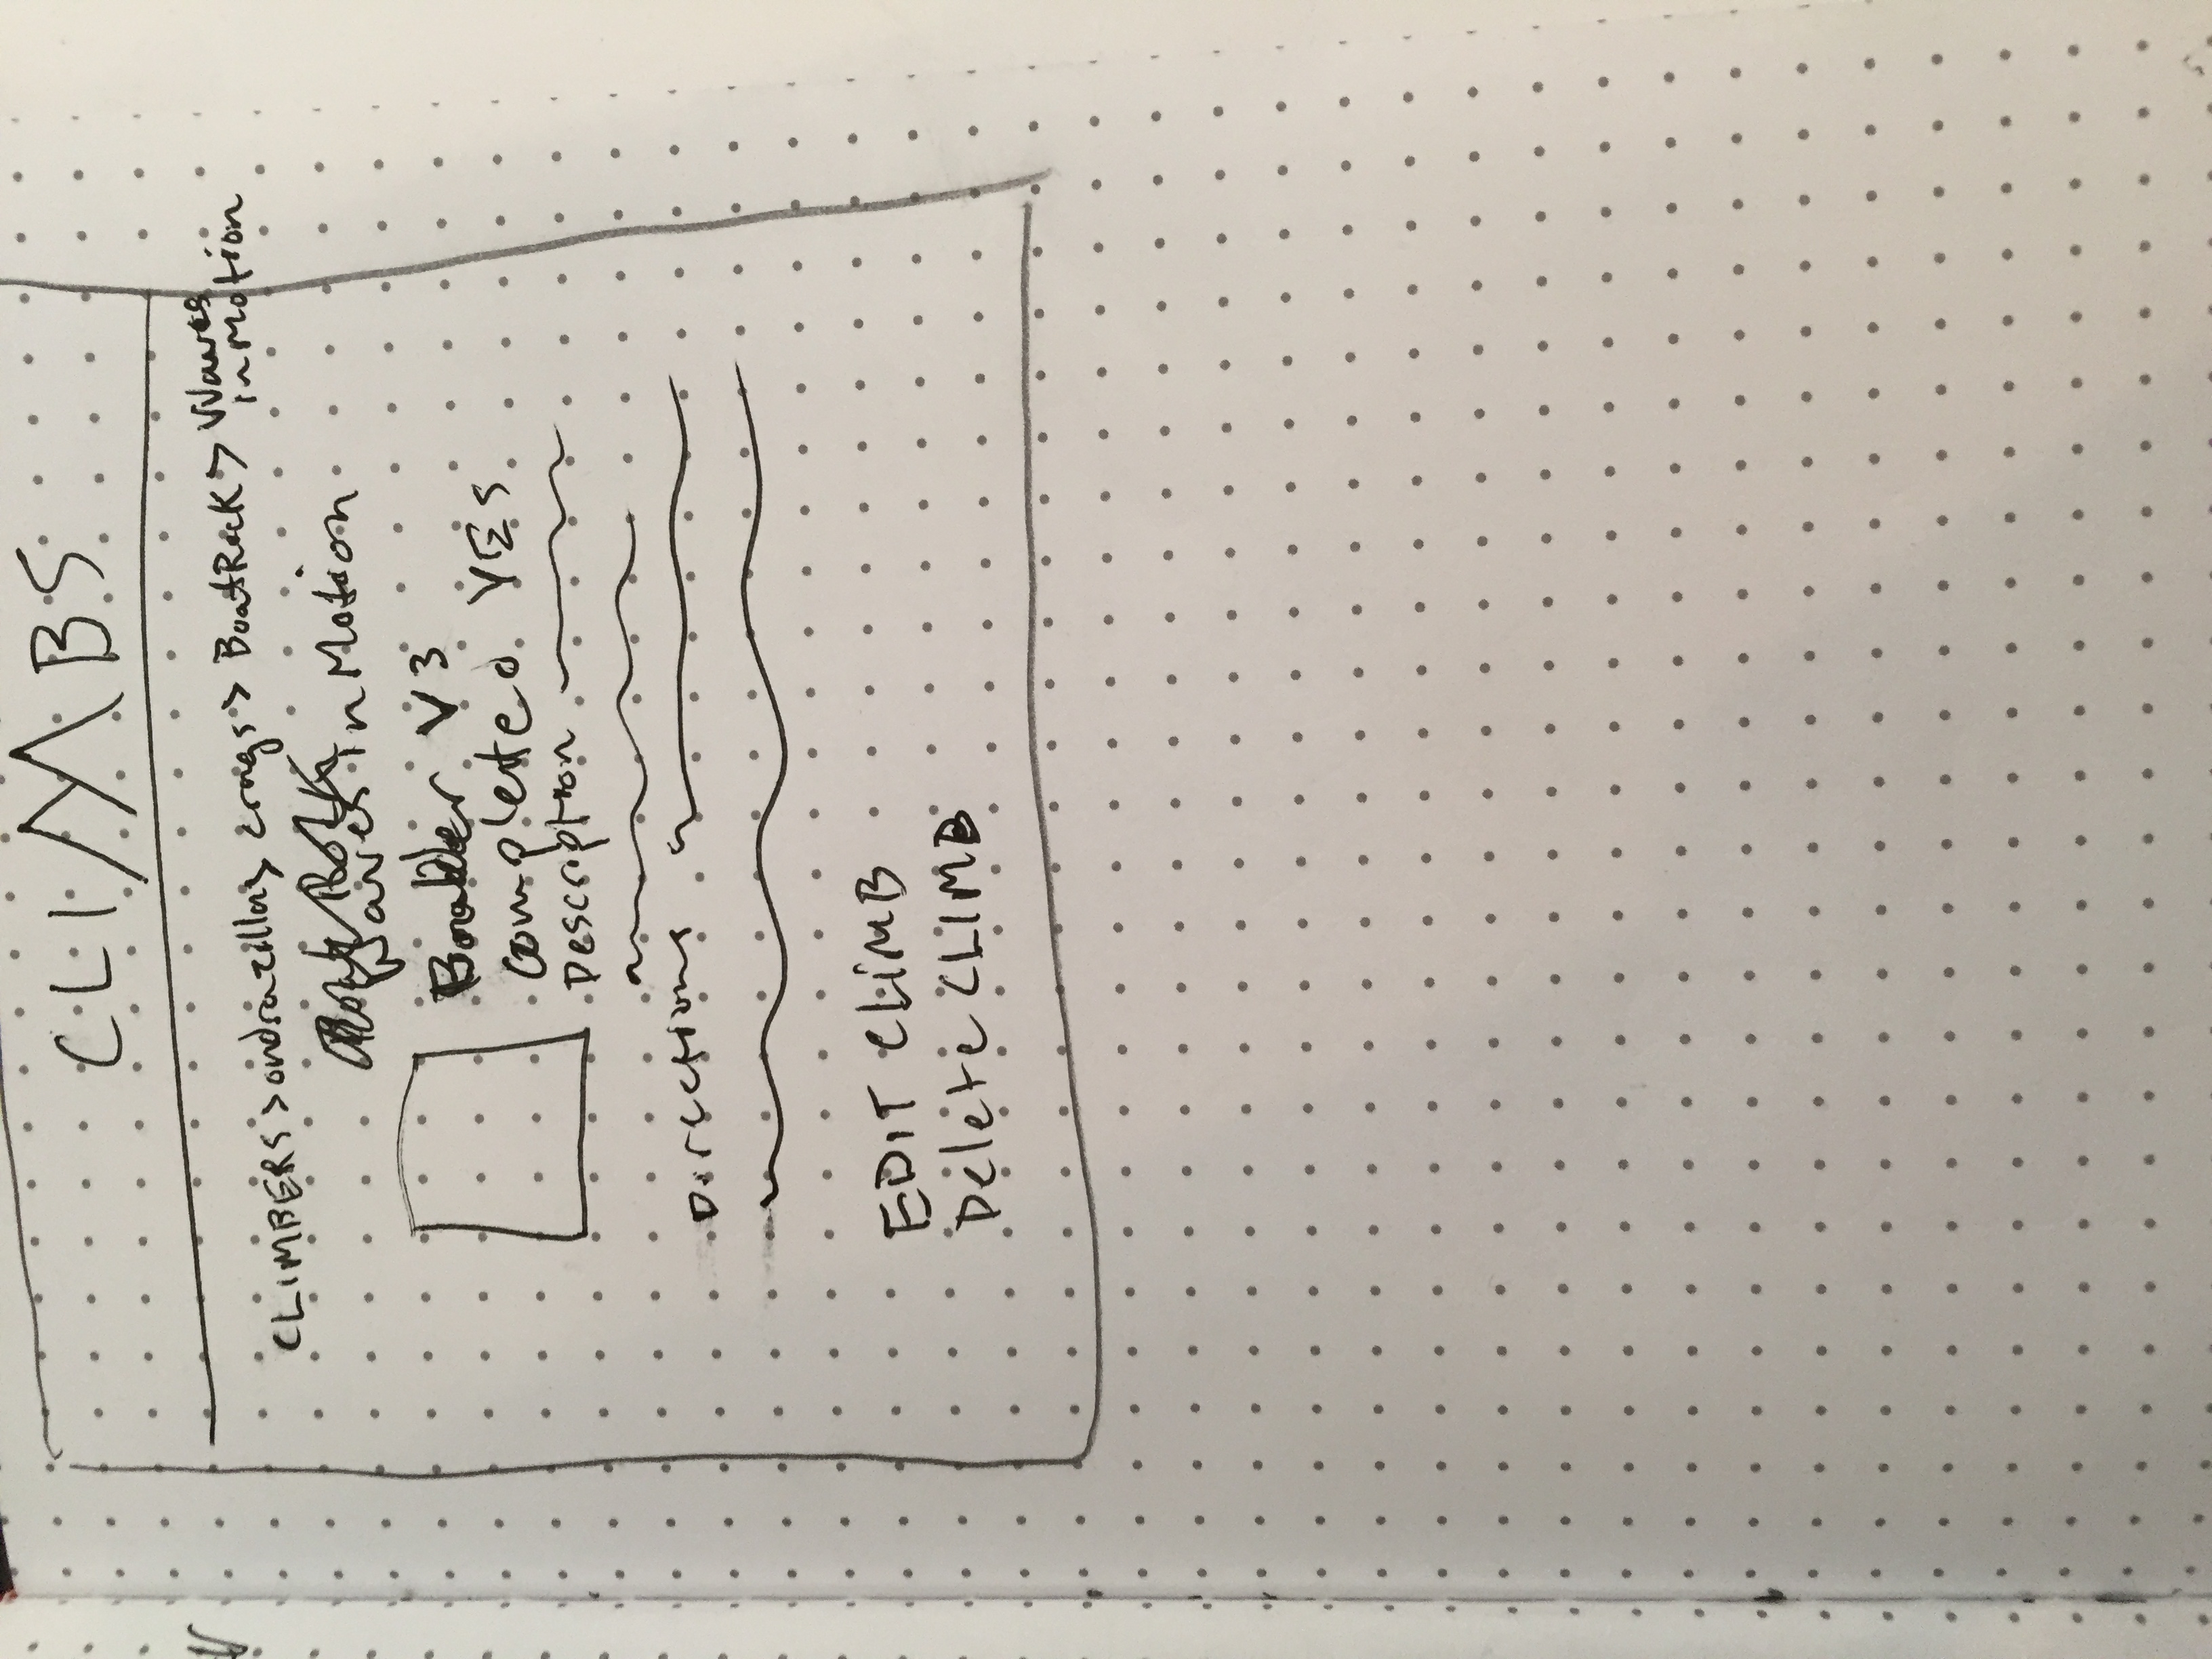 CLIMBS
CLIMBERS > ondrazilla > crags > BoatRock > Waves in Motion
Waves in Motion
Boulder V3
completed YES
Description
Directions
EDIT CLIMB
Delete CLIMB